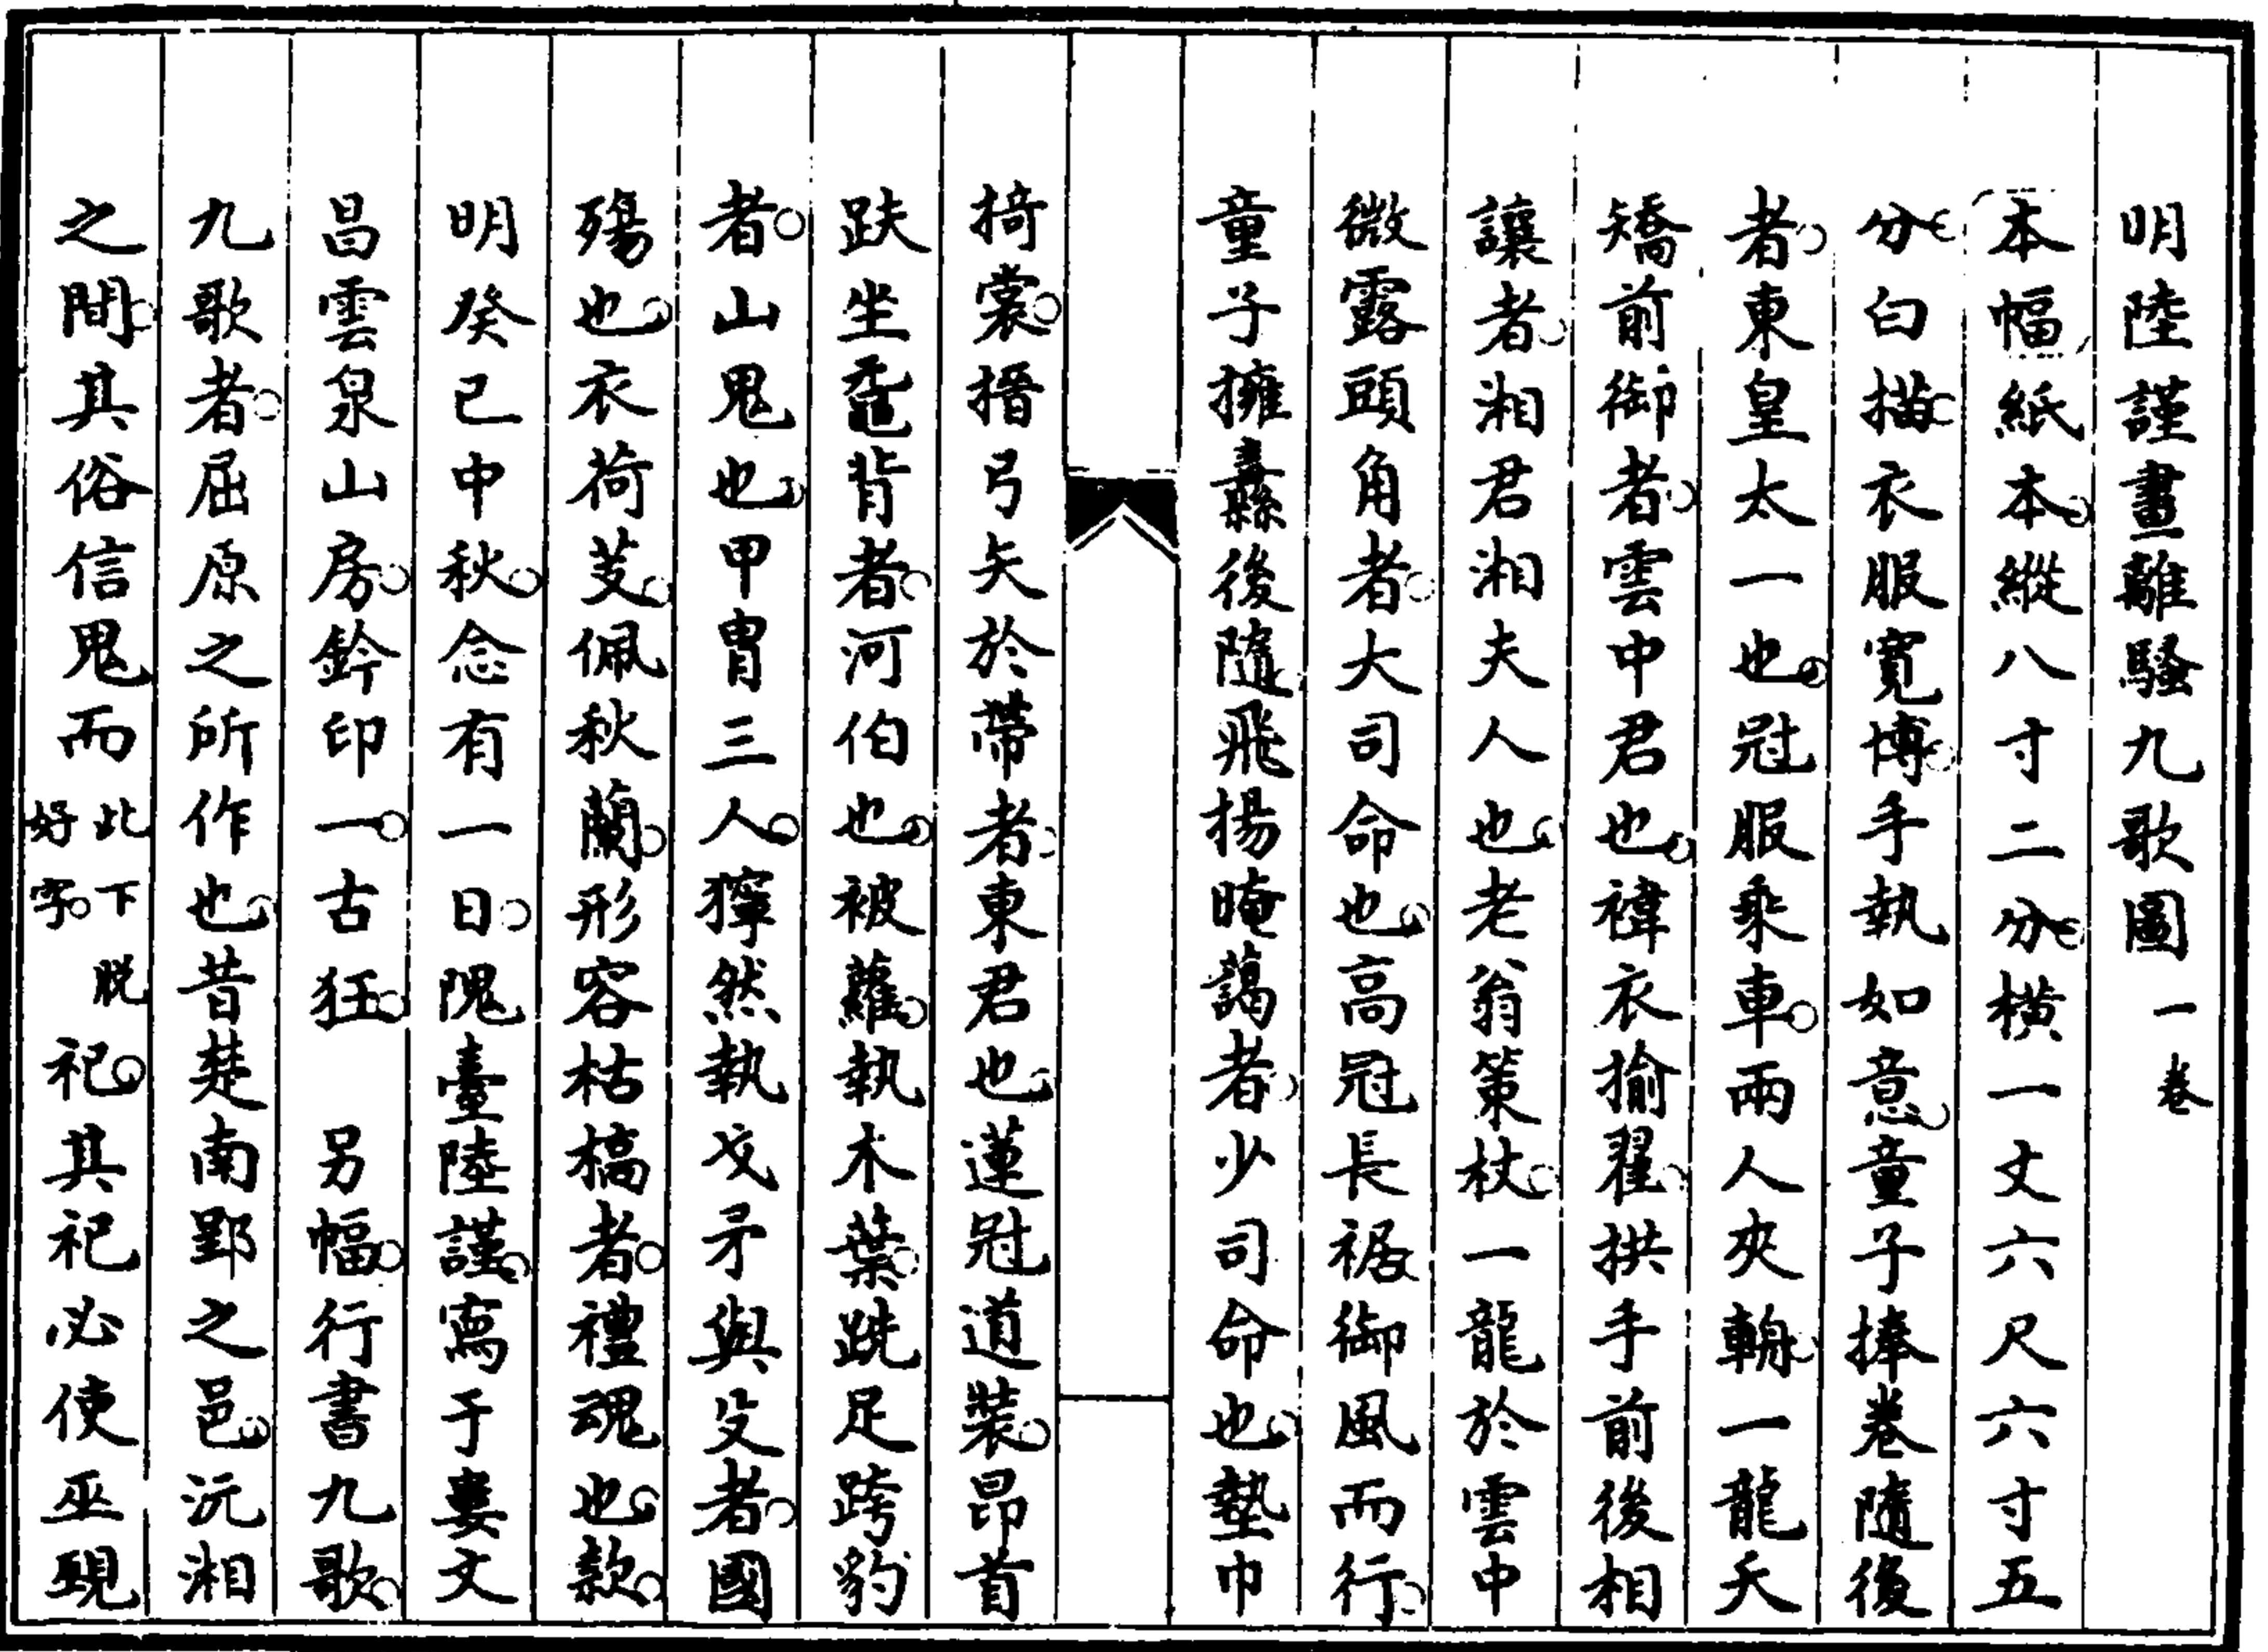 明陸謹畫離騷九歌圖一卷
本幅紙本縱八寸二分橫一丈六尺六寸五
分白描衣服寬博手執如意童子捧卷隨後
者東皇太一也冠服乘車兩人夾輈一龍夭
矯前御者雲中君也褘衣揄翟拱手前後相
讓者湘君湘夫人也老翁策杖一龍於雲中
微露頭角者大司命也高冠長裾御風而行
童子擁纛後隨飛揚晻藹者少司命也墊巾
掎裳搢弓矢於帶者東君也蓮冠道裝昂首
趺坐黿背者河伯也被蘿執木葉跣足跨豹
者山鬼也甲胄三人獰然執戈矛與殳者國
殤也衣荷芰佩秋蘭形容枯槁者禮魂也款
明癸巳中秋念有一日隗臺陸謹寫于婁文
昌雲泉山房鈐印一古狂　另幅行書九歌
九歌者屈原之所作也昔楚南郢之邑沅湘
之間其俗信鬼而此下脱好字祀其祀必使巫覡